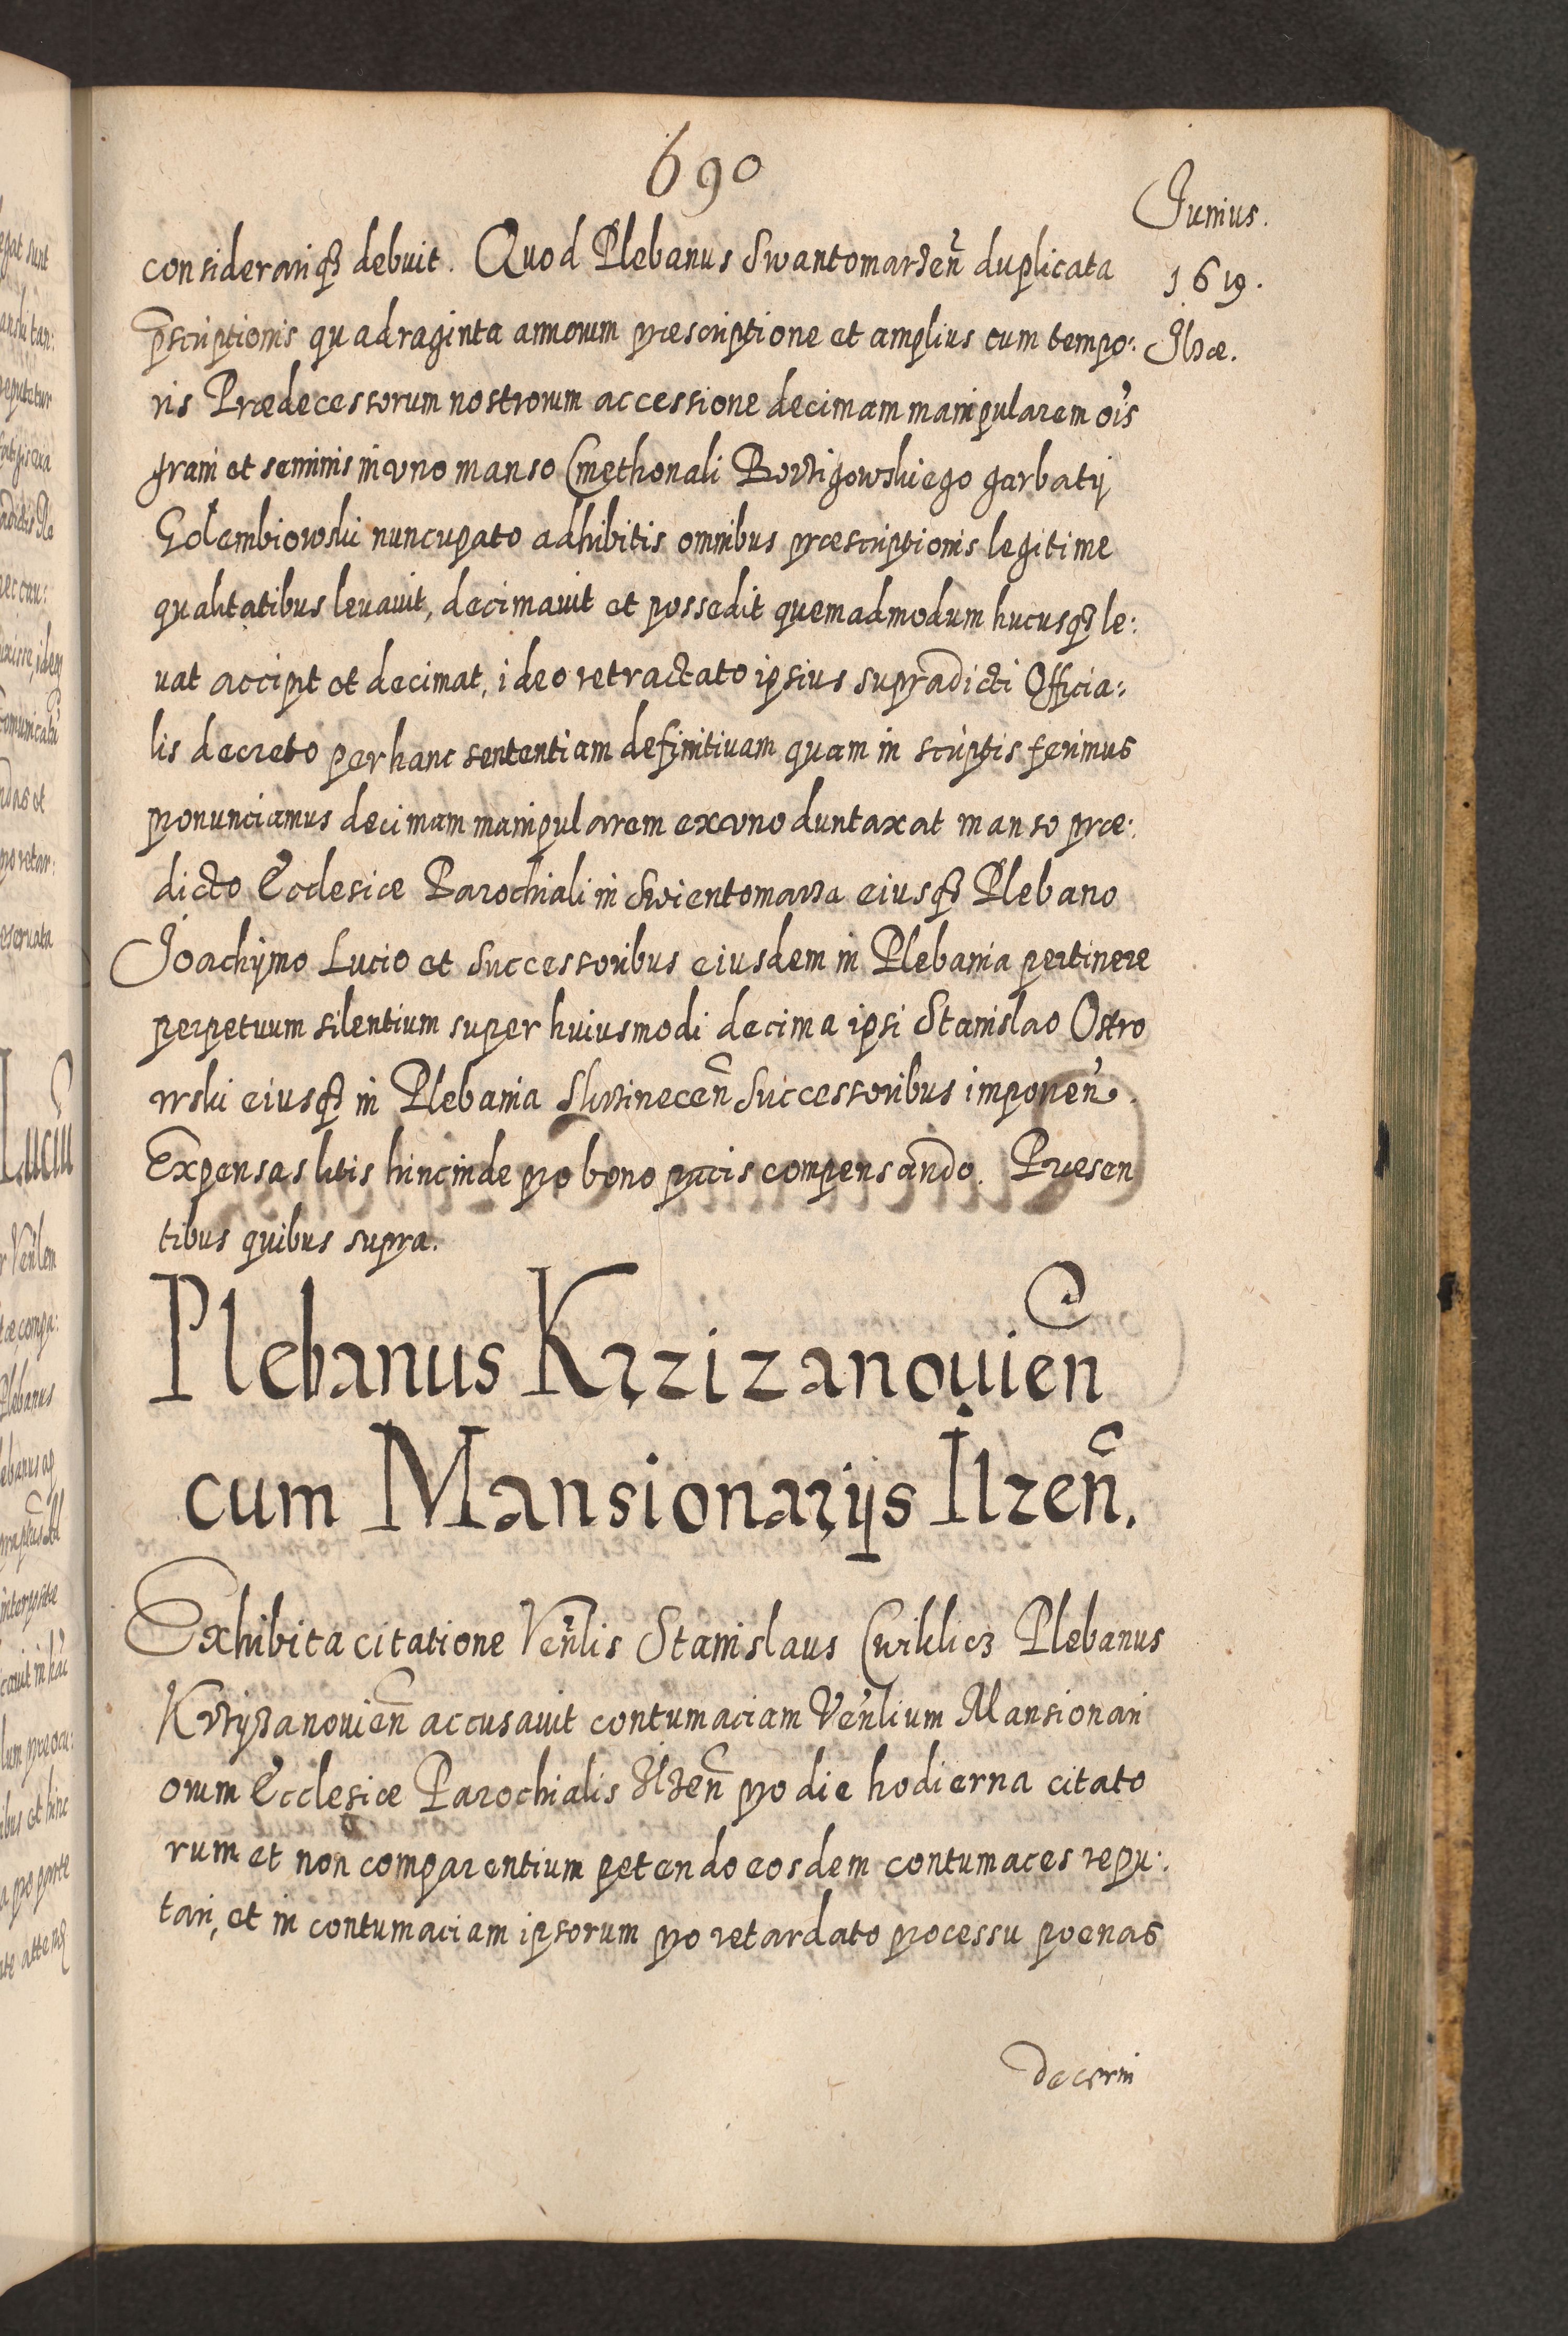 690
Junius.
1619.
Ilzæ.
considerariqȝ debuit. Quod Plebanus Swantomarzen̄ duplicata
p̄scriptionis quadraginta annorum præscriptione et amplius cum tempo:
ris Prædecessorum nostrorum accessione decimam manipularem ōis
grani et seminis in vno manso Cmethonali Borzigowskiego garbatÿ
Golembiowski nuncupato adhibitis omnibus præscriptionis legitime
qualitatibus leuauit, decimauit et possedit quemadmodum hucusqȝ le:
uat accipit et decimat, ideo retractato ipsius supradicti Officia:
lis decreto per hanc sententiam definitiuam quam in scriptis ferimus
pronunciamus decimam manipularem ex vno duntaxat manso præ:
dicto Ecclesiæ Parochiali in Swientomarza eiusqȝ Plebano
Joachÿmo Lucio et Successoribus eiusdem in Plebania pertinere
perpetuum silentium super huiusmodi decima ipsi Stanislao Ostro
wski eiusqȝ in Plebania Skrzinecen̄ Successoribus imponen̄.
Expensas litis hincinde pro bono pacis compensando. Præsen
tibus quibus supra.
Plebanus Krzizanouien̄
cum Mansionarÿs Ilzen̄.
Exhibita citatione Ven̄lis Stanislaus Cwiklicz Plebanus
Krzyzanouien̄ accusauit contumaciam Ven̄lium Mansionari
orum Ecclesiæ Parochialis Ilzen̄ pro die hodierna citato
rum et non comparentium petendo eosdem contumaces repu:
tari, et in contumaciam ipsorum pro retardato processu poenas
decerni